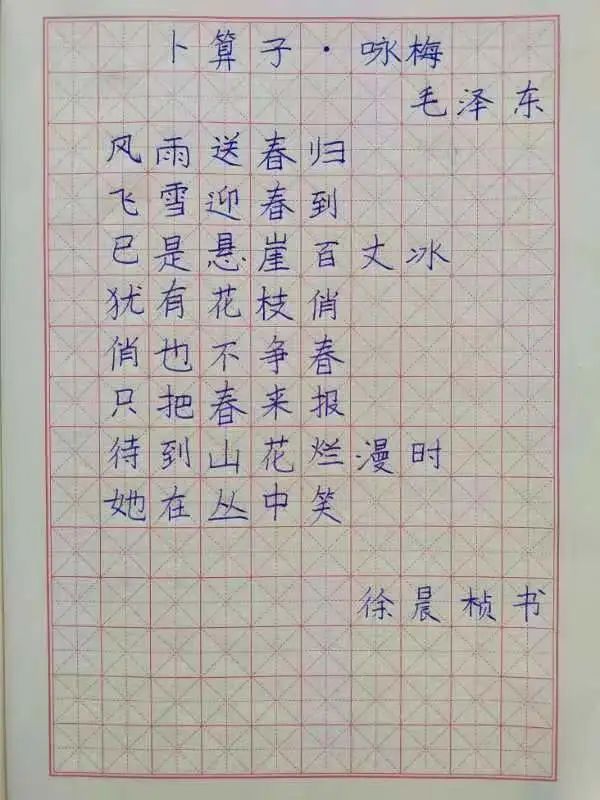 卜算子·咏梅
毛泽东
风雨送春归
飞雪迎春到
已是悬崖百丈冰
犹有花枝俏
俏也不争春
只把春来报
待到山花烂漫时
她在丛中笑
徐晨桢书